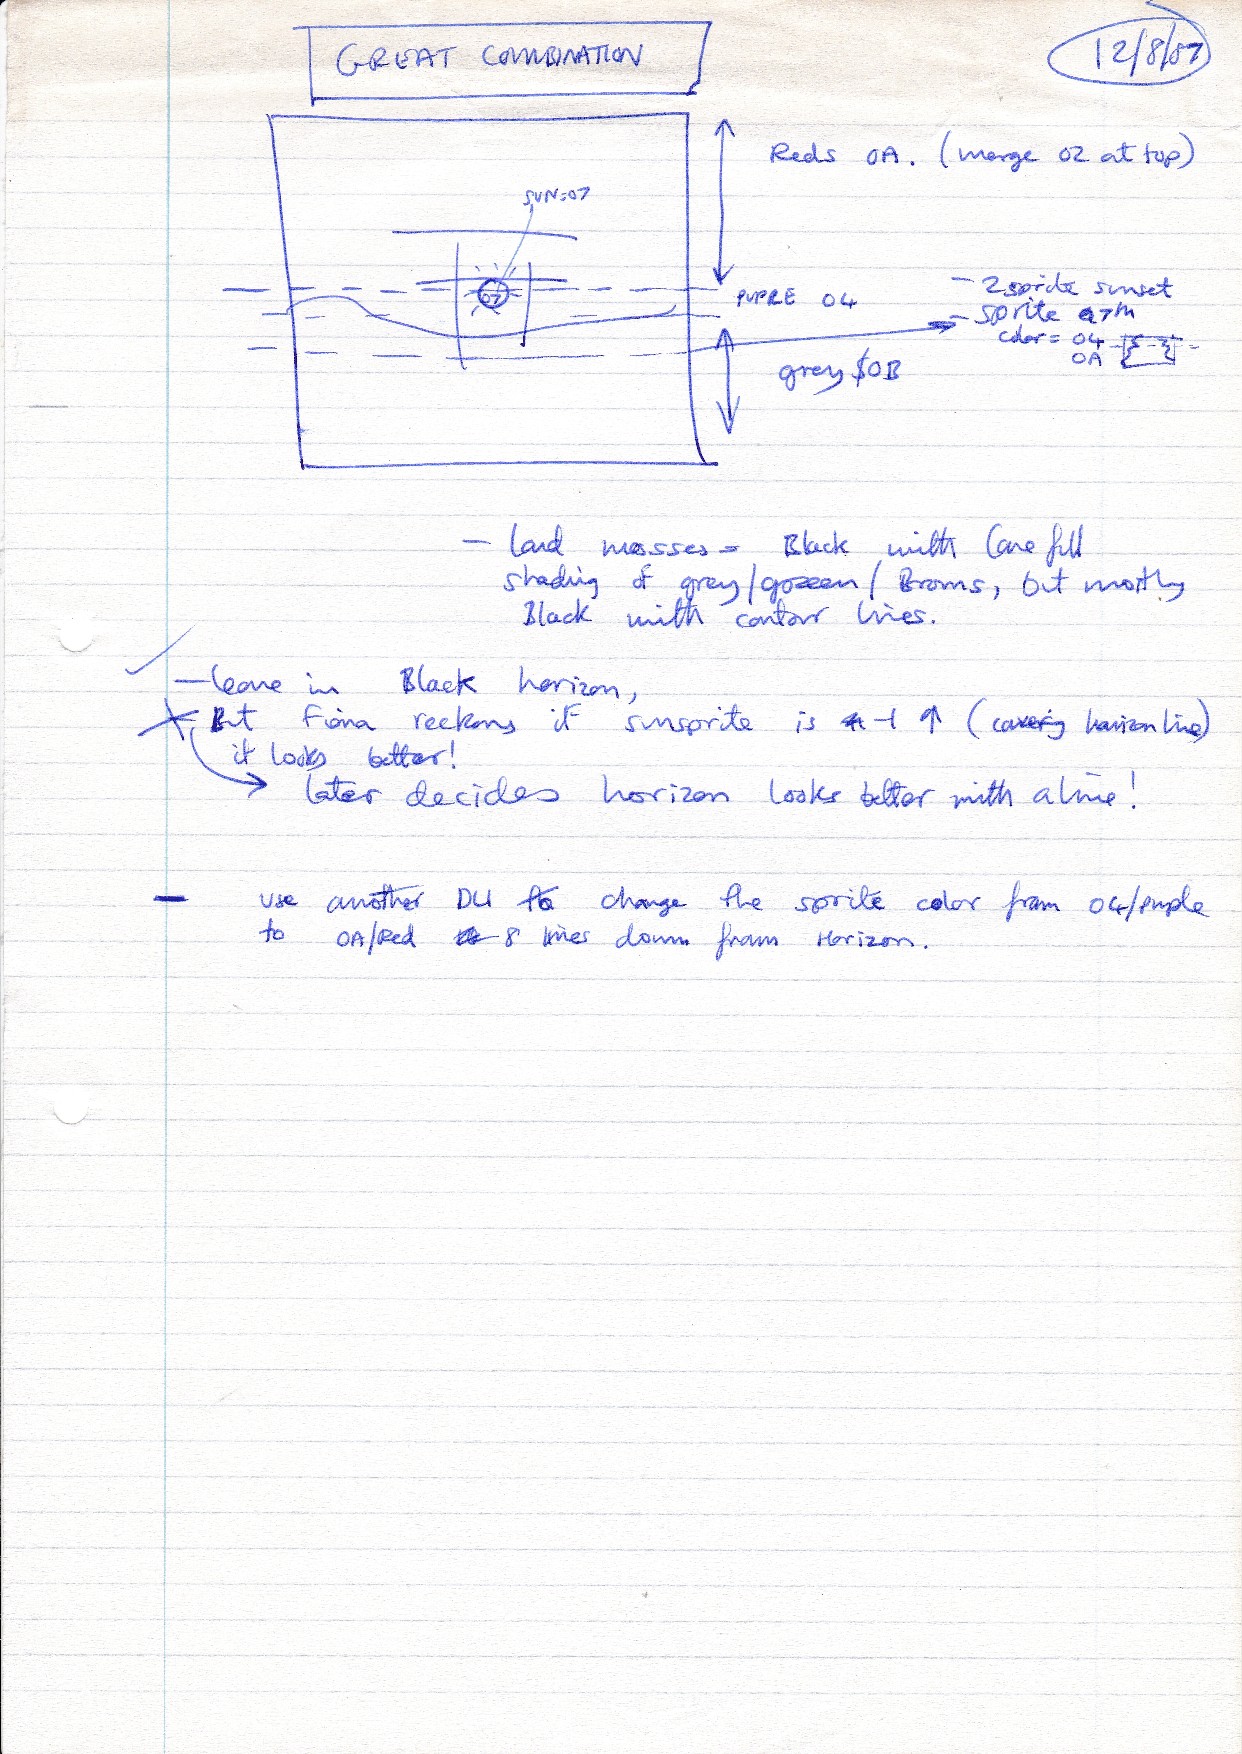 GREAT COMBINATION
12/8/87
Reds 0A. (merge 02 at top)
SUN=07
07
PUPRE 04
- 2 sprite sunset
- sprite
color = 04
0A
grey $0B
- land masses = Black with Carefull
shading of grey/green/Browns, but mostly
Black with contour lines.
- leave in Black horizon,
- But Fiona reckons if sunsprite is -1 ↑ (covering horizon line)
it looks better!
later decides horizon looks better with a line!
- use another DLI to change the sprite color from 04/purple
to 0A/Red 8 lines down from Horizon.